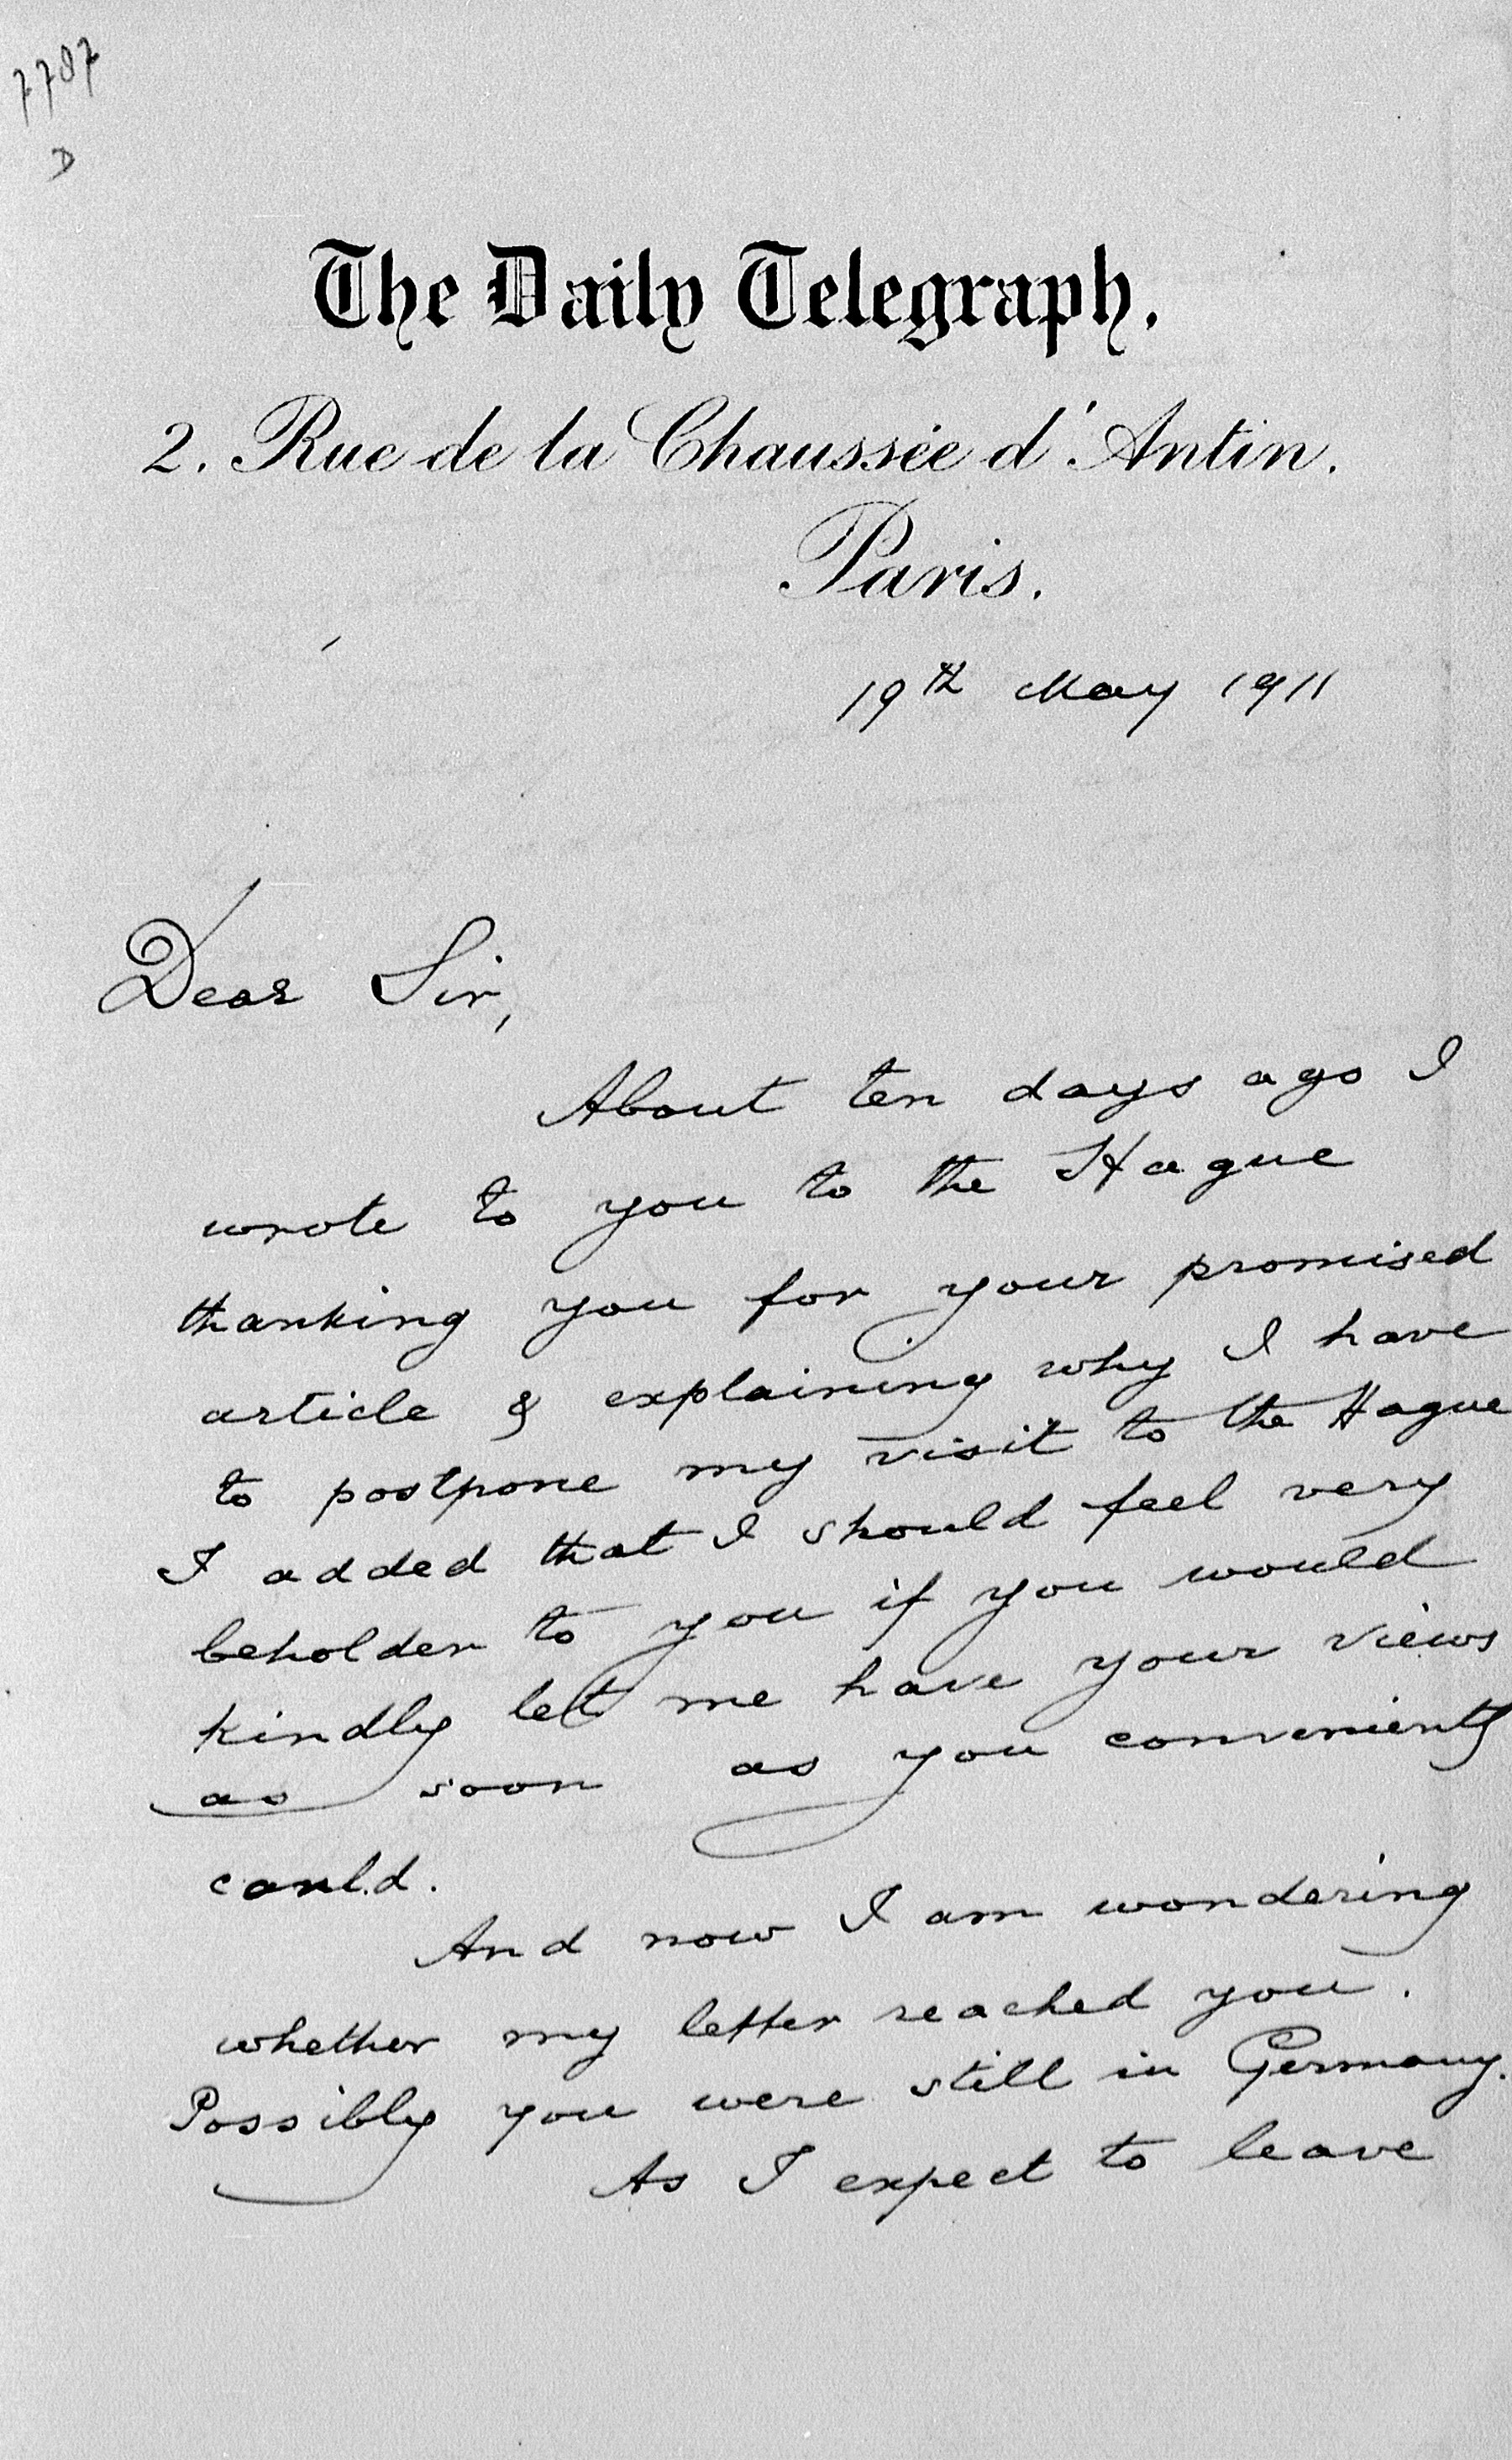 7787
D
The Daily Telegraph.
2. Rue de la Chaussée d'Antin.
Paris.
19th May 1911
Dear Sir,
About ten days ago I
wrote to you to the Hague
thanking you for your promised
article & explaining why I have
to postpone my visit to the Hague
I added that I should feel very
beholden to you if you would
kindly let me have your views
as soon as you conveniently
could.
And now I am wondering
whether my letter reached you.
Possibly you were still in Germany.
As I expect to leave